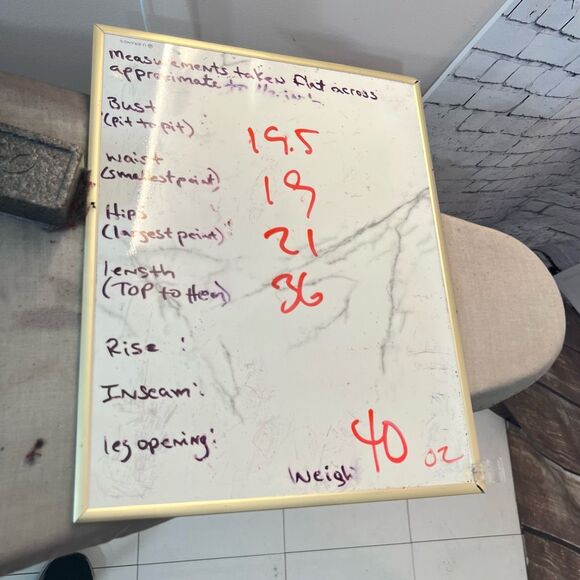 Measurements taken flat across
approximate to
Bust
(pit to pit) 19.5
Waist
(smallest point) 19
Hips
(largest point) 21
length
(TOP to Hem) 36
Rise :
Inseam :
leg opening :
Weigh 40 oz